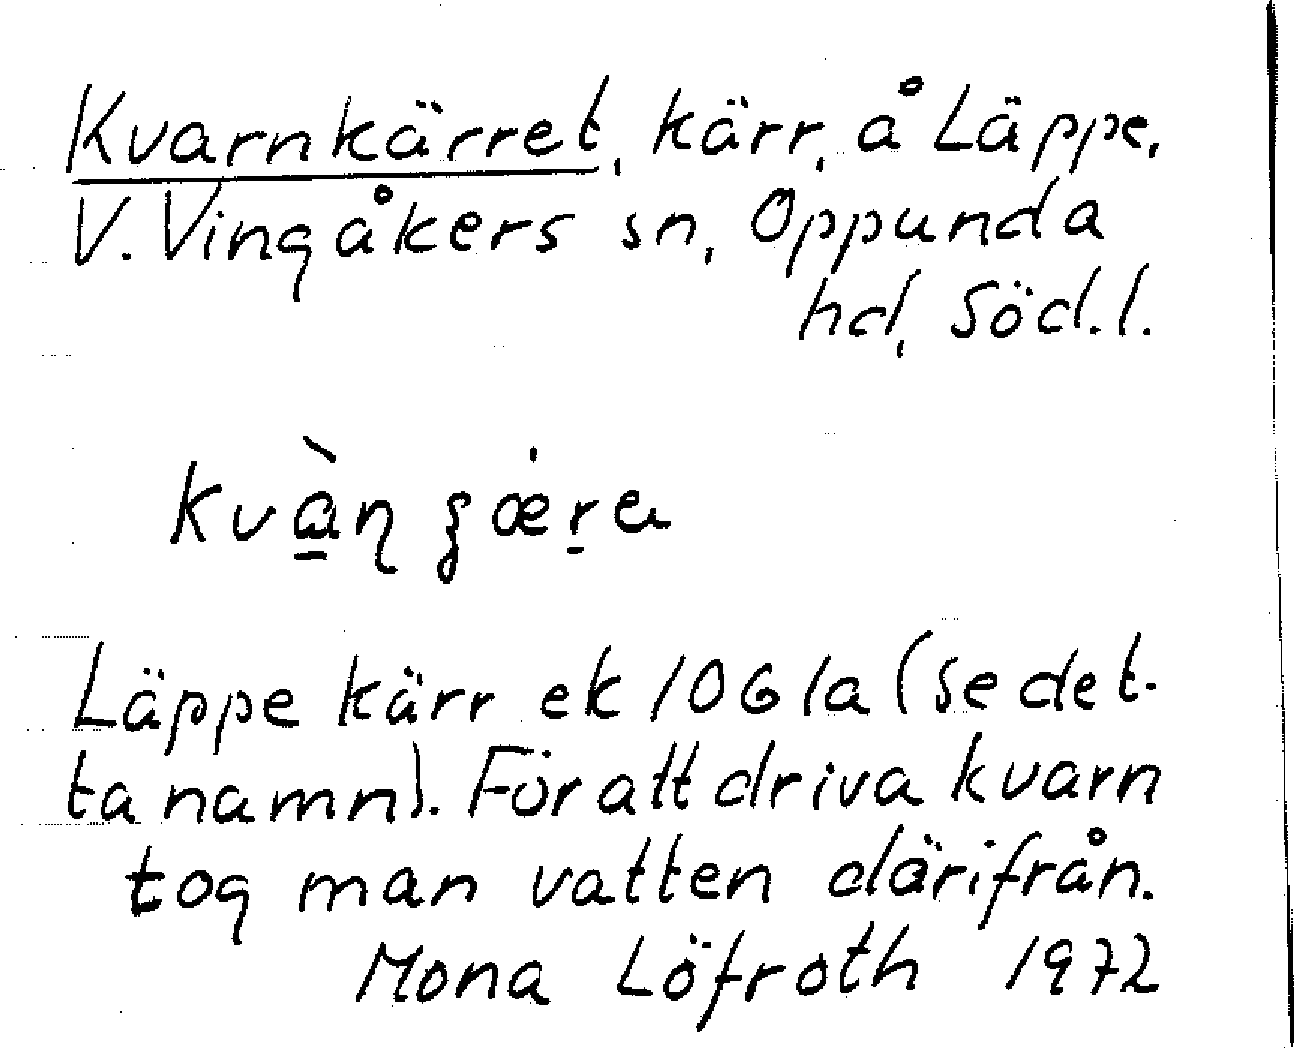 Kvarnkärret, kärr, å Läppe,
V. Vingåkers sn, Oppunda
hd, Söd.l.
Läppe kärr ek 1061a (se det-
ta namn). För att driva kvarn
tog man vatten därifrån.
Mona Löfroth 1972